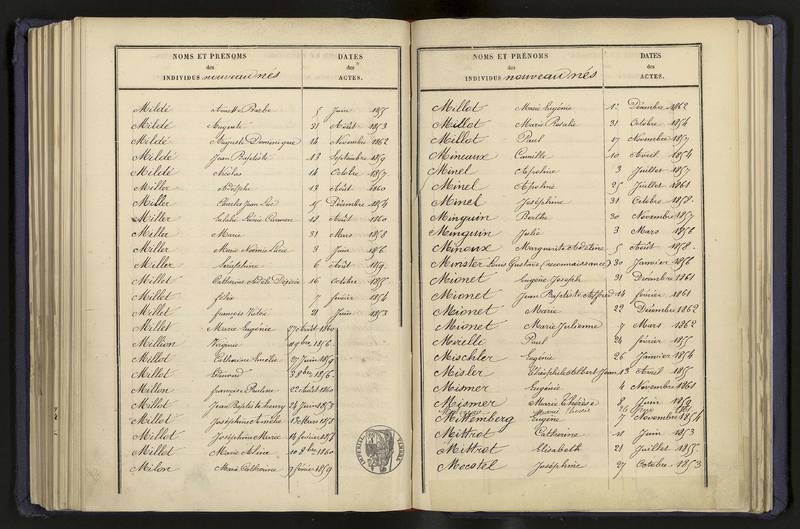 NOMS ET PRÉNOMS
des
INDIVIDUS nouveau nés
DATES
des
ACTES.
Mildé 5 Juin 1855
Mildé Auguste 21 Août 1853
Mildé Auguste Dominique 14 Novembre 1862
Mildé Jean Baptiste 13 Septembre 1859
Mildé Nicolas 14 Octobre 1857
Miller Adolphe 13 Août 1860
Miller Charles Jean Luc 15 Décembre 1854
Miller Carmen 18 Août 1860
Miller Marie 31 Mars 1858
Miller Marie Noémie 3 Juin 1856
Miller Séraphine 6 Août 1859
Millet Catherine Adèle Désirée 16 Octobre 1855
Millet 7 février 1854
Millet françois Victor 21 Juin 1853
Millet Marie Eugénie 27 Août 1860
Million Virginie 1856
Millot Catherine Amélie 27 Juin 1859
Millot 8bre 1856
Millon françoise Pauline 22 Août 1860
Millot Jean Baptiste henry 24 Juin 1858
Millot Joséphine Amélie 13 Mars 1858
Millot Joséphine Marie 14 février 1857
Millot Marie Aline 10 8bre 1860
Milon Marie Catherine 9 février 1859
NOMS ET PRÉNOMS
des
INDIVIDUS nouveau nés
DATES
des
ACTES.
Millot Marie Eugénie 12 Décembre 1862
Millot Marie Rosalie 31 Octobre 1856
Millot Paul 17 Novembre 1857
Mineaux Camille 10 Avril 1854
Minel Apoline 3 Juillet 1857
Minel Apoline 25 Juillet 1861
Minel Joséphine 31 Octobre 1858
Minguin Berthe 30 Novembre 1857
Minguin Julie 3 Mars 1856
Minoux Marguerite Adeline 5 Août 1858
Minster Louis Gustave (reconnaissance) 30 Janvier 1856
Mionet Eugène Joseph 31 Décembre 1861
Mionet Jean Baptiste Alfred 14 février 1861
Mionet Marie 22 Décembre 1862
Mionet Marie Julienne 7 Mars 1862
Paul 24 février 1855
Mischler Eugénie 26 Janvier 1854
Misler Albert Jean 13 Avril 1855
Mismer Eugénie 4 Novembre 1861
Mismer Marie Thérèse 8 Juin 1859
Mittemberg Eugène 7 Novembre 1854
Mittrot Catherine 11 Juin 1853
Mittrot Elisabeth 21 Juillet 1855
Joséphine 27 Octobre 1853